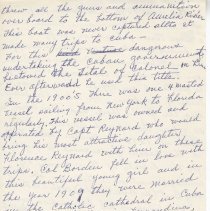 threw all the guns and ammunition
overboard to the bottom of Amelia River
This boat was never captured altho it
made many trips to Cuba -
For this dangerous
undertaking the Cuban government
bestowed the title of Colonel on
Ever afterward he used this title.
In the 1900's there was one 4 masted
vessel sailing from New York to Florida
regularly. This vessel was owned
operated by Capt Reynard who would
bring his most attractive daughter
Florence Reynard with him on these
trips. Col Borden fell in love with
this beautiful young girl and in
the year 1909 they were married
in the Catholic cathedral in Cuba